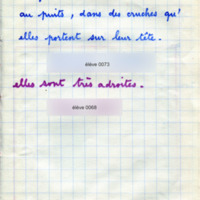 au puits, dans des cruches qu'
elles portent sur leur tête.
élève 0073
elles sont très adroites.
élève 0068